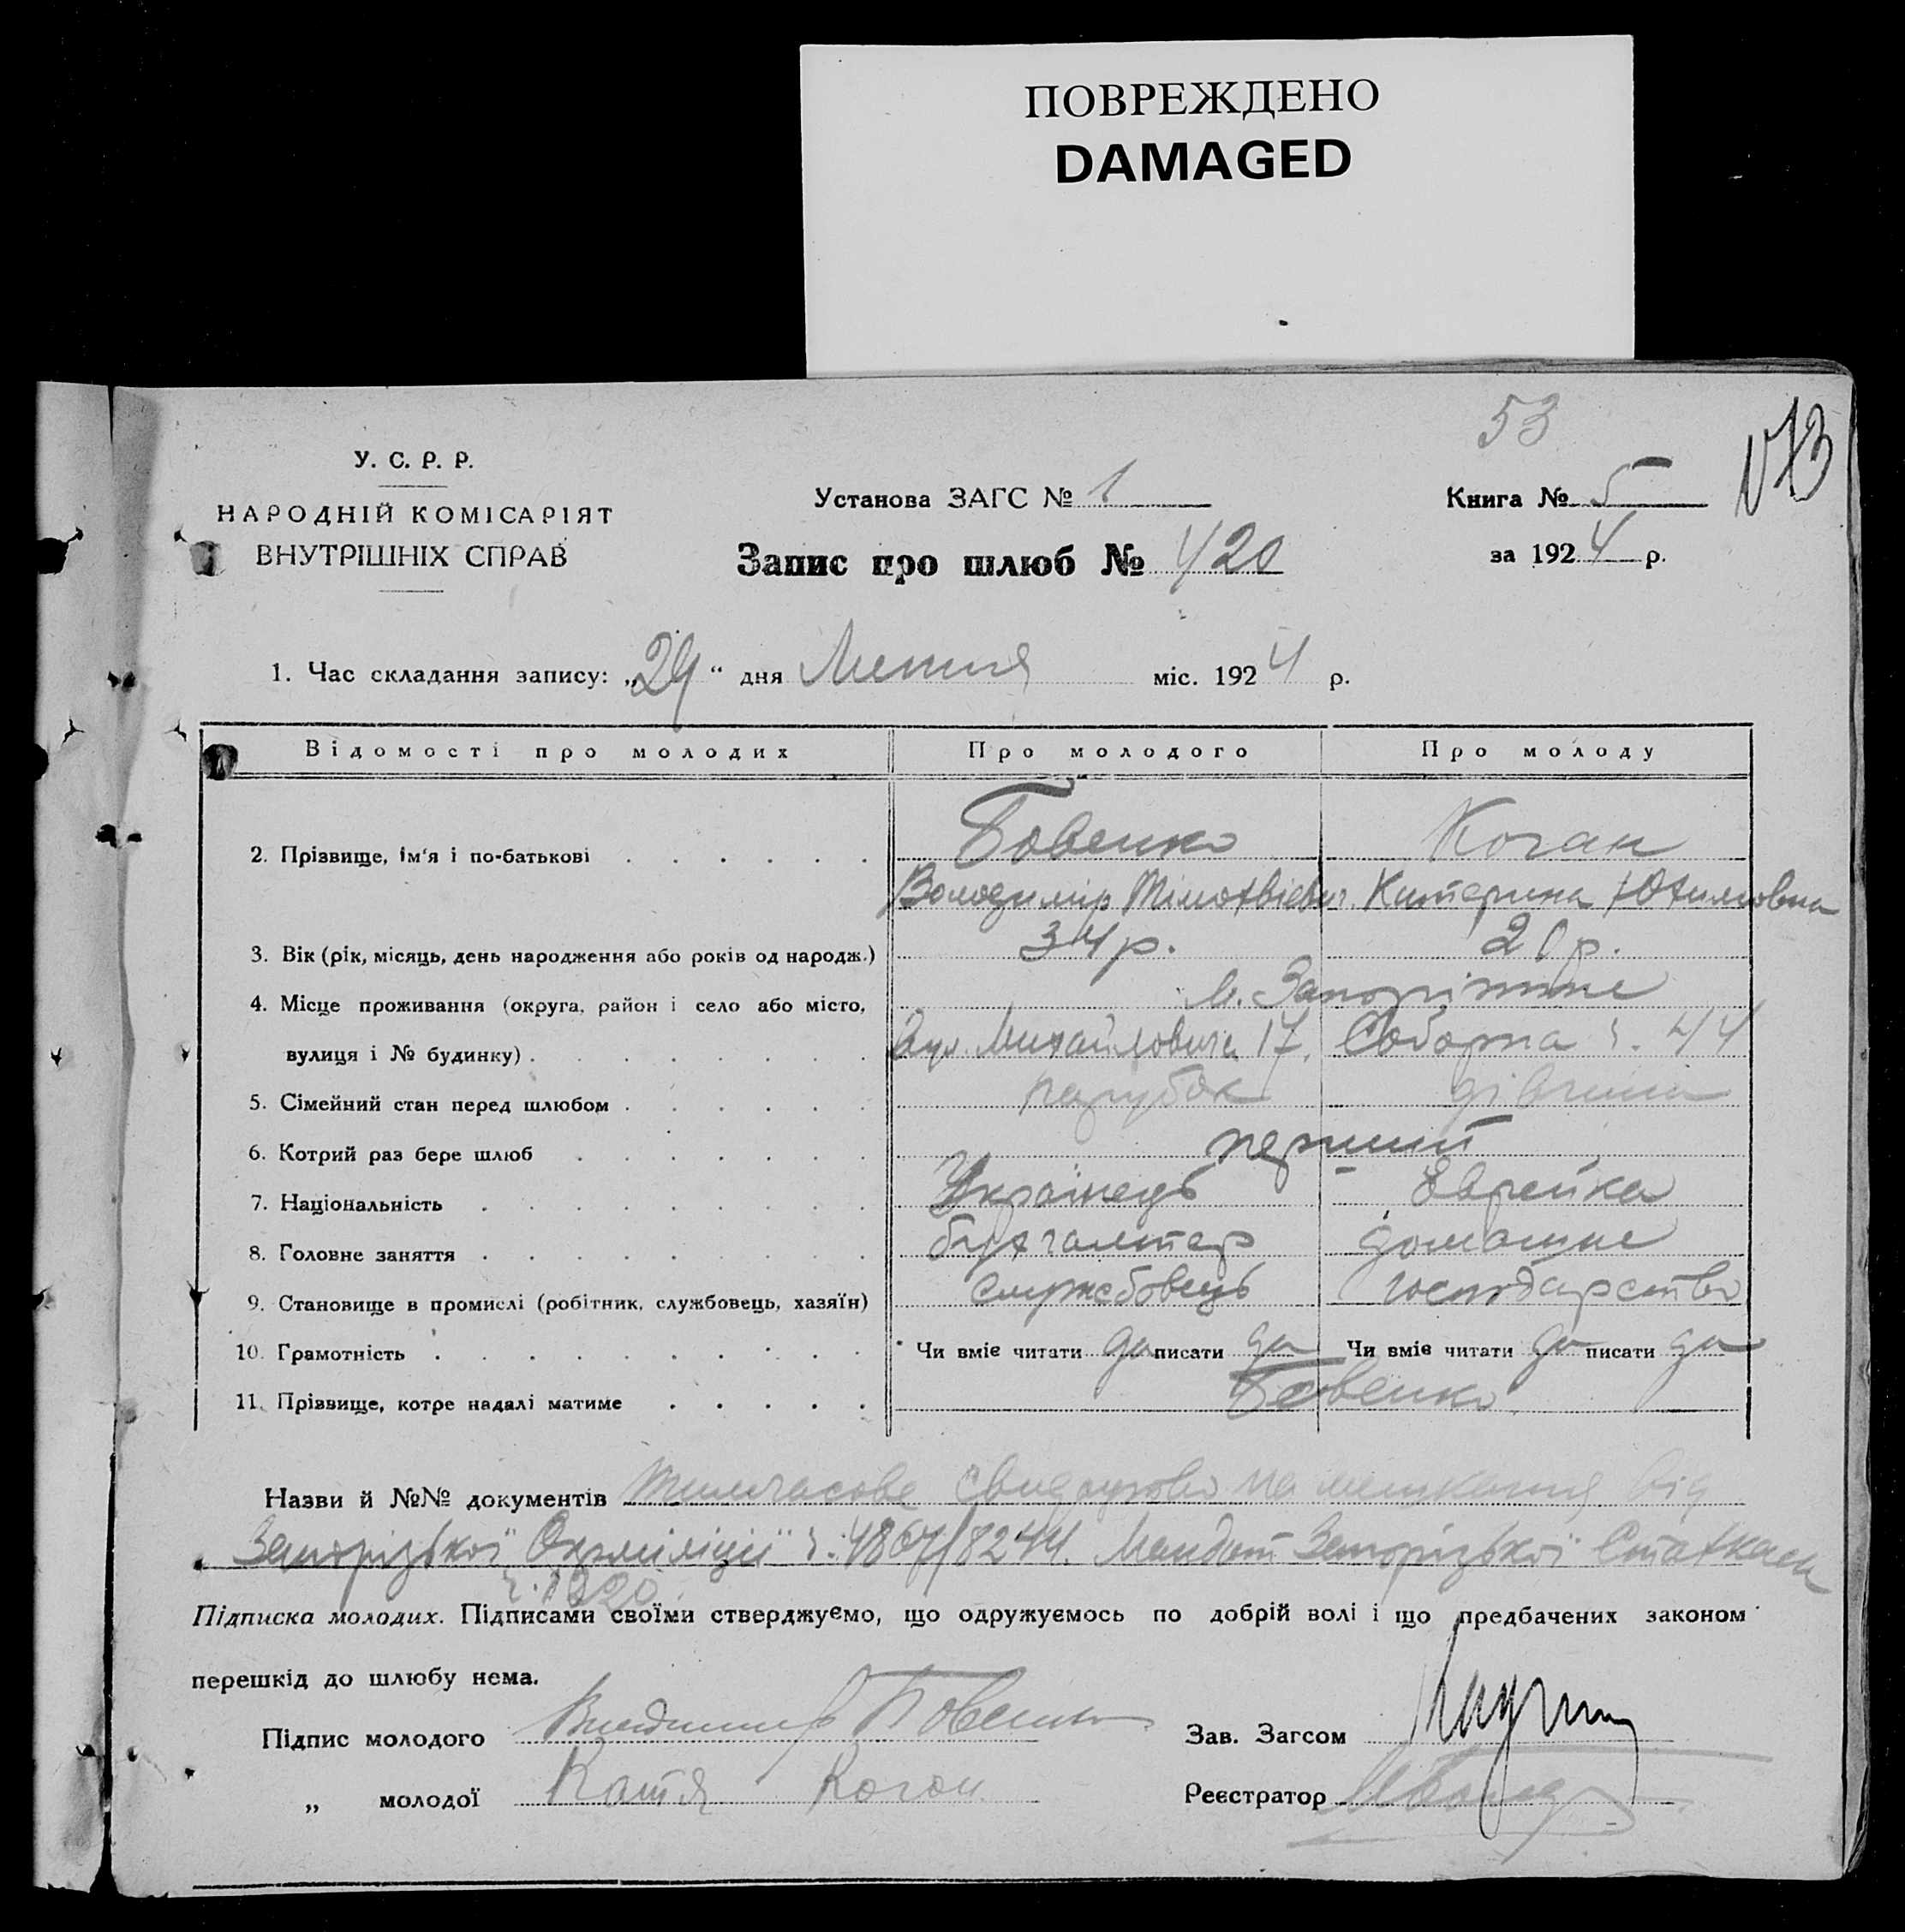 ПОВРЕЖДЕНО
DAMAGED
53
У. С. Р. Р.
НАРОДНІЙ КОМІСАРІЯТ
ВНУТРІШНІХ СПРАВ
Установа ЗАГС № 1
Книга № 5
Запис про шлюб № 420
за 1924 р.
1. Час складання запису: „29“ дня Липня міс. 1924 р.
Відомості про молодих Про молодого Про молоду
2. Прізвище, ім'я і по-батькові Бовенко Коган
Володимір Тімохвієвич Катерина Юхимовна
3. Вік (рік, місяць, день народження або років од народж.) 34 р. 20 р.
4. Місце проживання (округа, район і село або місто, м. Запоріжже
вулиця і № будинку) Вул. Михайловича 17. Соборна ч. 44
5. Сімейний стан перед шлюбом парубок дівчина
6. Котрий раз бере шлюб перший
7. Національність Українець Еврейка
8. Головне заняття бухгалтер домашнє
9. Становище в промислі (робітник, службовець, хазяїн) службовець господарство
10. Грамотність Чи вміє читати да писати да Чи вміє читати да писати да
11. Прізвище, котре надалі матиме Бовенко
Назви й №№ документів тимчасове свидоцтво на мешкання від
Запорізької Окрміліції ч. 4867/8244. Мандат Запорізької
ч. 1220.
Підписка молодих. Підписами своїми стверджуємо, що одружуємось по добрій волі і що предбачених законом
перешкід до шлюбу нема.
Підпис молодого Владимир Бовенко
Зав. Загсом
„ молодої Катя Коган
Реєстратор